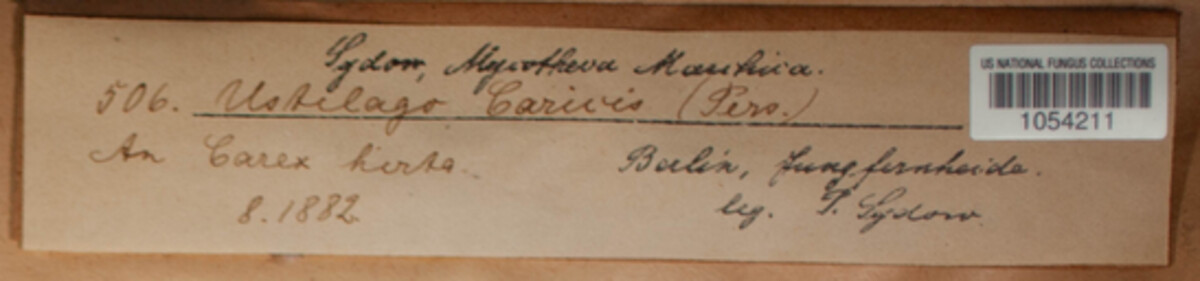 Sydow, Mycotheca Marchica.
506. Ustilago Caricis (Pers.)
An Carex hirta.
8. 1882.
Berlin, Jungfernheide.
leg. P. Sydow.
US NATIONAL FUNGUS COLLECTIONS
1054211